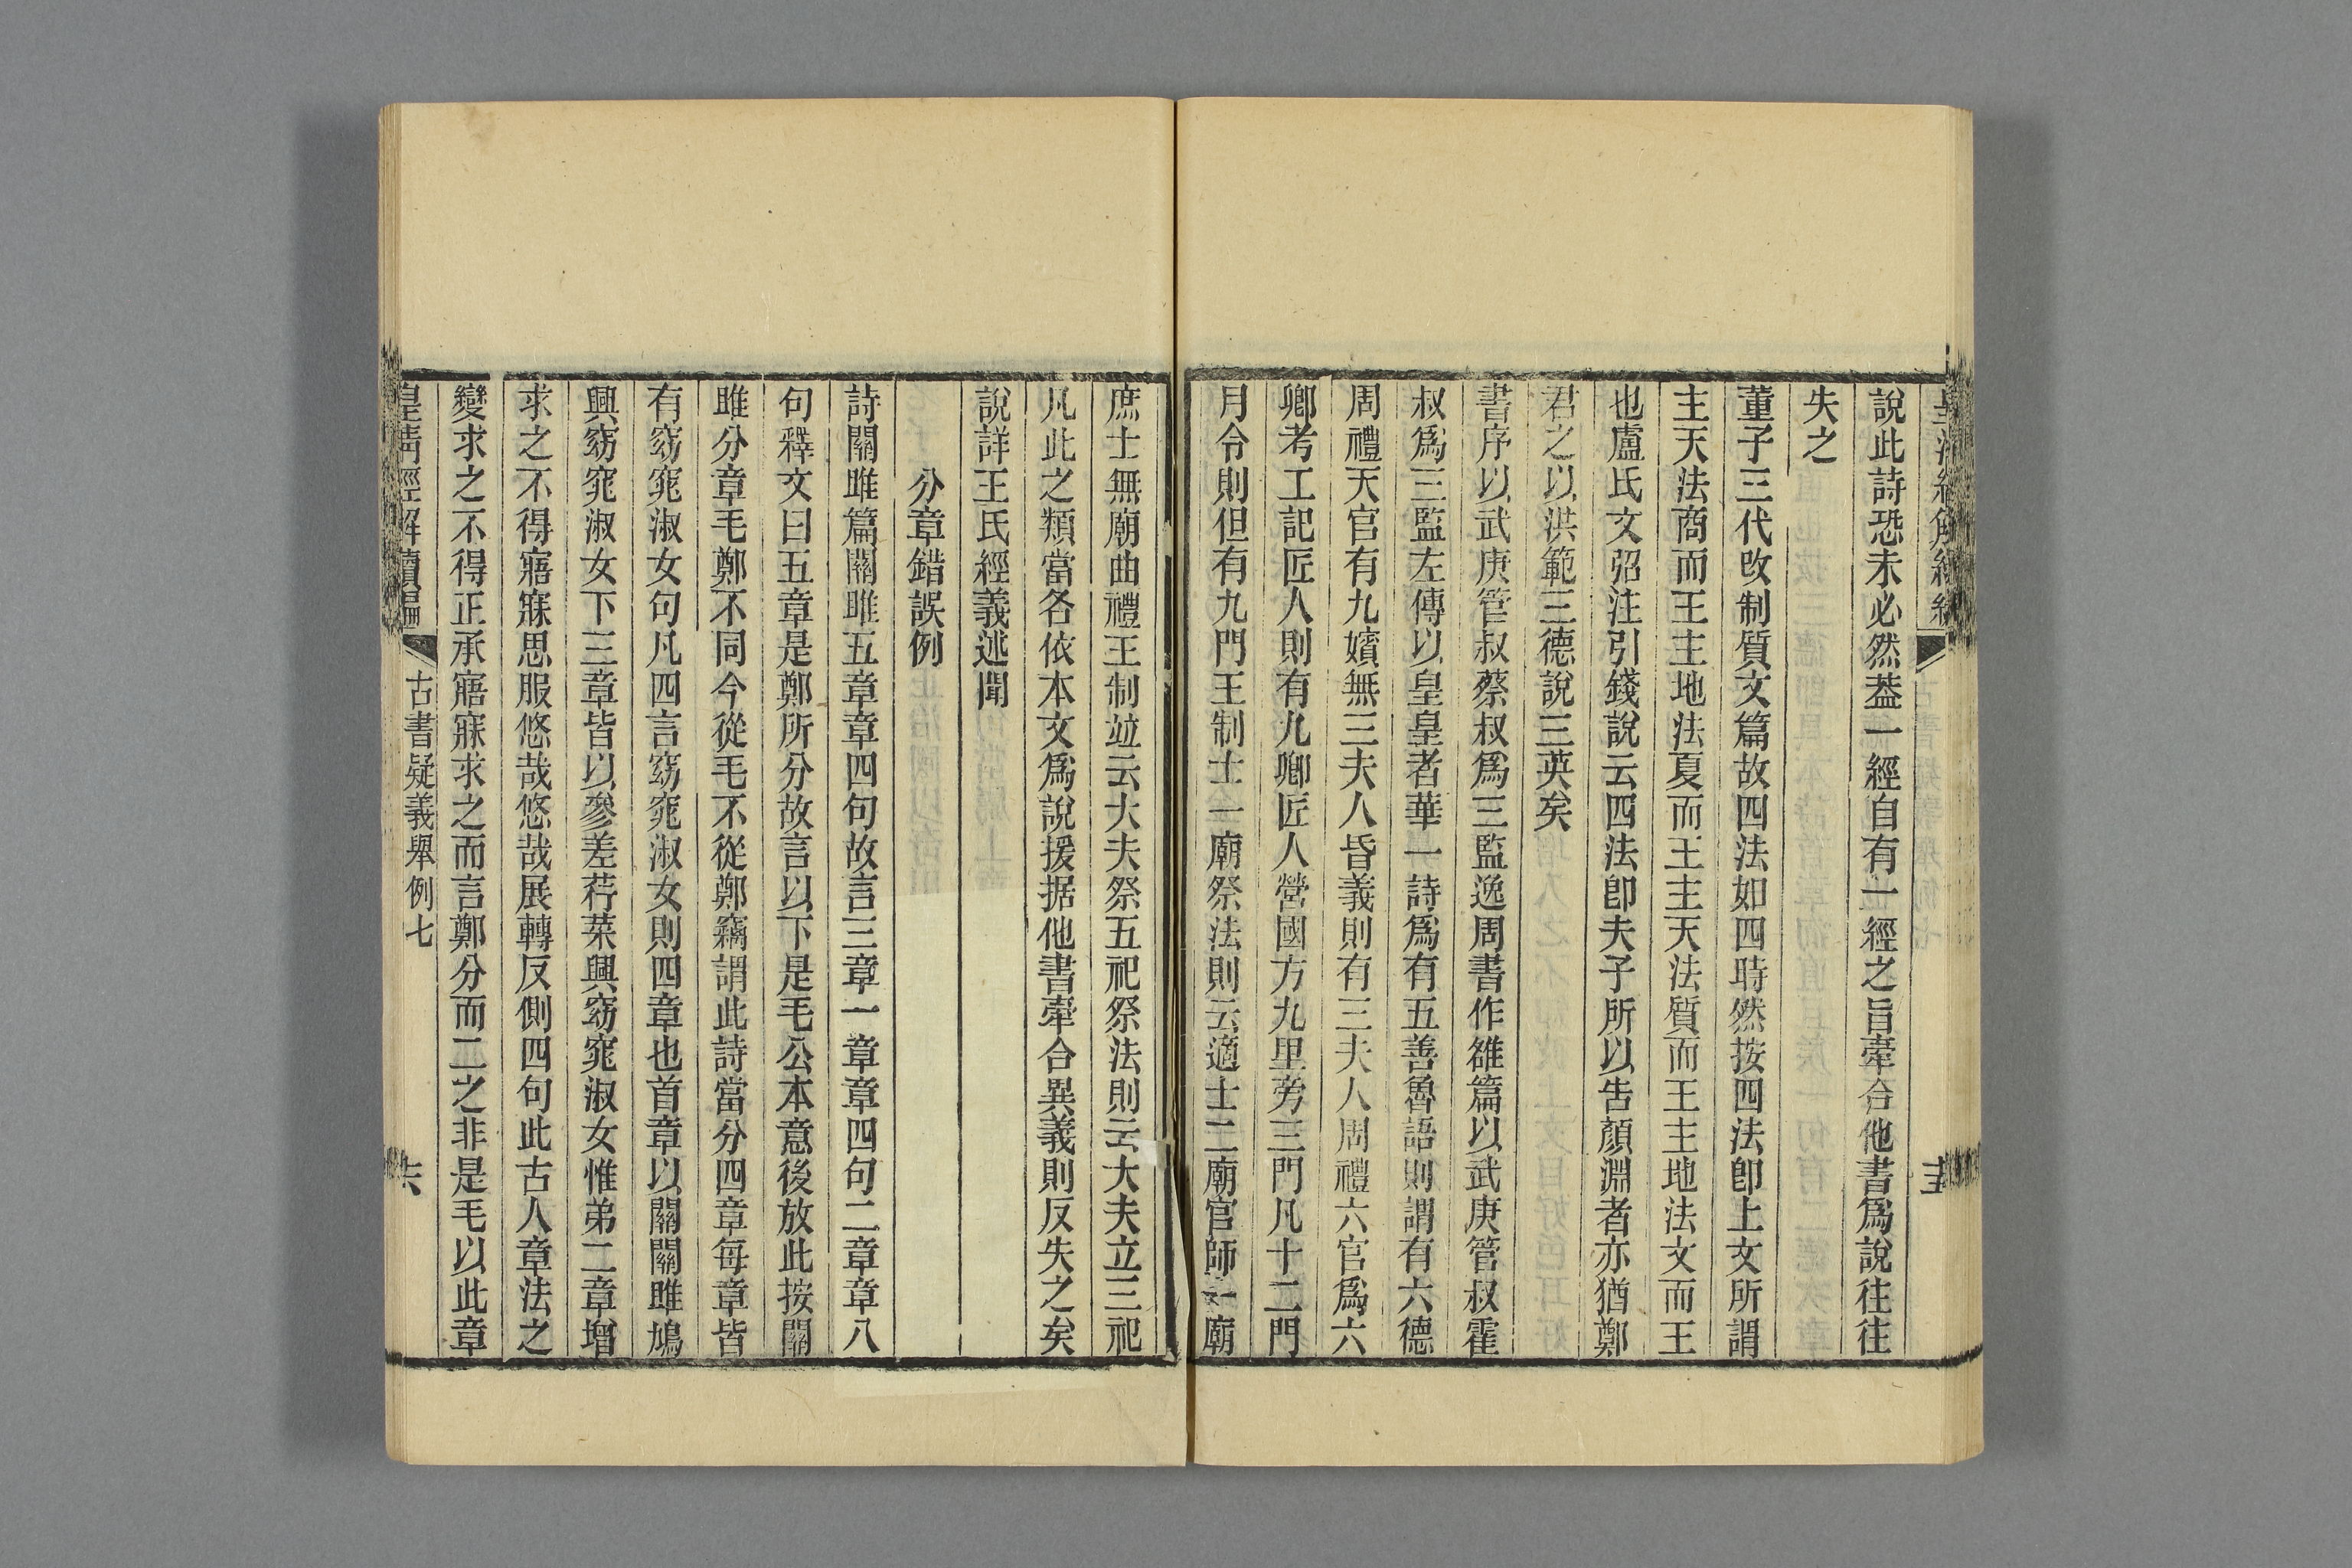 說此詩恐未必然葢一經自有一經之旨牽合他書爲說往往
失之
董子三代改制質文篇故四法如四時然按四法卽上文所謂
主天法商而王主地法夏而王主天法質而王主地法文而王
也盧氏文弨注引錢說云四法卽夫子所以告顏淵者亦猶鄭
君之以洪範三德說三英矣
書序以武庚管叔蔡叔爲三監逸周書作雒篇以武庚管叔霍
叔爲三監左傳以皇皇者華一詩爲有五善魯語則謂有六德
周禮天官有九嬪無三夫人昏義則有三夫人周禮六官爲六
卿考工記匠人則有九卿匠人營國方九里旁三門凡十二門
月令則但有九門王制士一廟祭法則云適士二廟官師一廟
庶士無廟曲禮王制竝云大夫祭五祀祭法則云大夫立三祀
凡此之類當各依本文爲說援据他書牽合異義則反失之矣
說詳王氏經義述聞
分章錯誤例
詩關雎篇關雎五章章四句故言三章一章章四句二章章八
句釋文曰五章是鄭所分故言以下是毛公本意後放此按關
雎分章毛鄭不同今從毛不從鄭竊謂此詩當分四章每章皆
有窈窕淑女句凡四言窈窕淑女則四章也首章以關關雎鳩
興窈窕淑女下三章皆以參差荇菜興窈窕淑女惟弟二章增
求之不得寤寐思服悠哉悠哉展轉反側四句此古人章法之
變求之不得正承寤寐求之而言鄭分而二之非是毛以此章
皇清經解續編 古書疑義舉例七 六